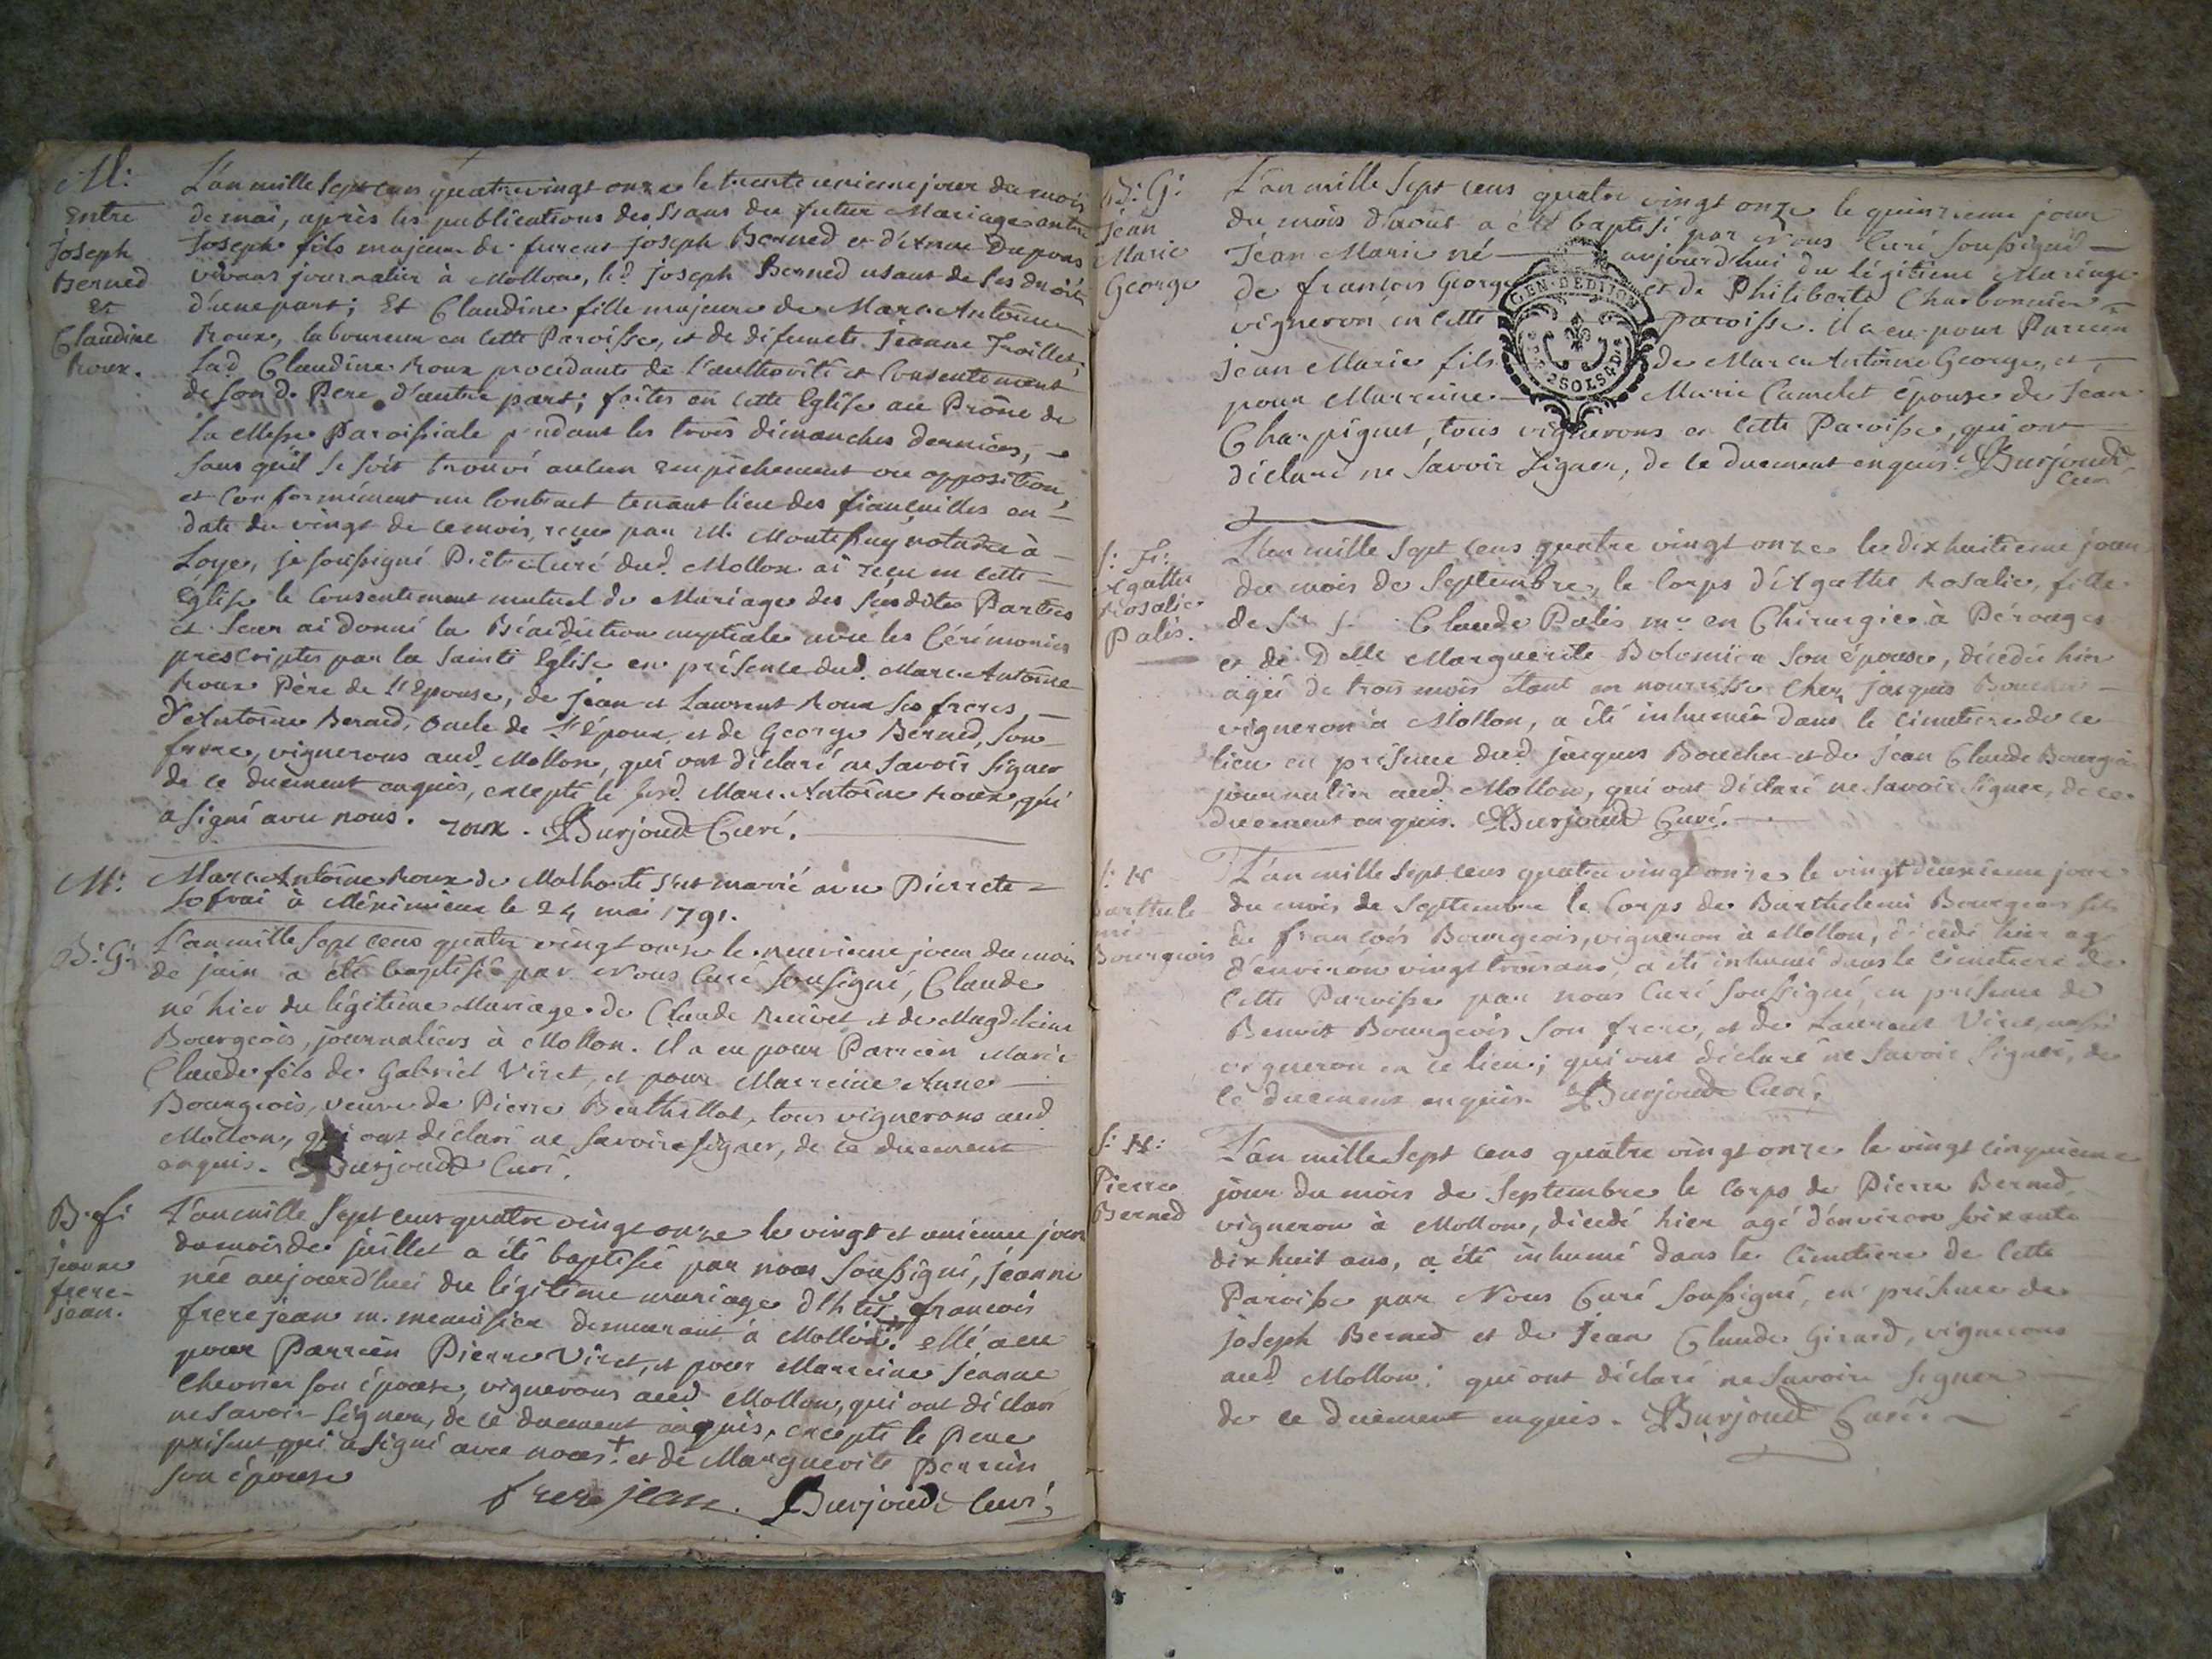 M:
Entre
Joseph
Berned
et
Claudine
Roux.
L'an mille sept cens quatre vingt onze le trente unieme jour du mois
de mai, après les publications des bans du futur Mariage entre
Joseph fils majeur de furent joseph Berned et d'Anne Dupras
vivans journalier à Mollon, led. joseph Berned usant de ses droits
d'une part; Et Claudine fille majeure de Marc Antoine
Roux, laboureur en cette Paroisse, et de defuncte Jeanne Troillet,
Lad. Claudine Roux procedante de l'authorité et Consentement
de son d. Pere d'autre part; faites en cette Eglise au Prône de
la Messe Paroissiale pendant les trois dimanches derniers,
sans qu'il se soit trouvé aucun empêchement ou opposition,
et conformément au Contract tenant lieu des fiancailles en
date du vingt de ce mois, reçu par M. Montessuy notaire à
Loye, je soussigné Prêtre Curé dud. Mollon ai reçu en cette
Eglise le Consentement mutuel de Mariage des susdites Parties
et leur ai donné la Bénédiction nuptiale avec les Cérémonies
prescriptes par la Sainte Eglise en présence dud. Marc Antoine
Roux Père de l'Epouse, de Jean et Laurent Roux ses freres,
d'Antoine Berned, Oncle de l'époux, et de George Berned, son
frere, vignerons aud. Mollon, qui ont déclaré ne savoir signer
de ce duement enquis, excepté le susd. Marc Antoine Roux, qui
a signé avec nous. roux. Burjoud Curé.
M: Marc Antoine Roux de Malhorte s'est marié avec Pierrete
Jofrai à Méximieux le 24 mai 1791.
B: G: L'an mille sept cens quatre vingt onze le neuvieme jour du mois
de juin a été baptisé par Nous Curé soussigné, Claude
né hier du légitime Mariage de Claude Revet et de Magdeleine
Bourgeois, journaliers à Mollon. Il a eu pour Parrein Marie
Claude fils de Gabriel Viret, et pour Marreine Anne
Bourgeois, veuve de Pierre Berthillot, tous vignerons aud.
Mollon, qui ont déclaré ne savoir signer, de ce duement
enquis. Burjoud Curé.
B. f:
jeanne
frere-
jean.
L'an mille sept cens quatre vingt onze le vingt et unieme jour
du mois de juillet a été baptisée par nous soussigné, jeanne
née aujourd'hui du légitime mariage d' françois
frerejean m. menuisier demeurant à Mollon. elle a eu
pour Parrein Pierre Viret, et pour Marreine Jeanne
Chevrier son épouse, vignerons aud. Mollon, qui ont déclaré
ne savoir signer, de ce duement enquis, excepté le Pere
présent qui a signé avec nous. + et de Marguerite Perrein
son épouse
frere jean. Burjoud Curé
B: G:
Jean
Marie
George
L'an mille sept cens quatre vingt onze le quinzieme jour
du mois d'août a été baptisé par Nous Curé soussigné
Jean Marie né aujourd'hui du légitime Mariage
de francois George et de Philiberte Charbonnier
vigneron en cette paroisse. il a eu pour Parrein
jean Marie fils de Marc Antoine George, et
pour Marreine Marie Camelet épouse de Jean
Charpignet, tous vignerons en cette Paroisse, qui ont
déclaré ne savoir signer, de ce duement enquis. Burjoud
Curé
GEN. DE DIJON
2 SOLS 4 D.
S: F:
Agathe
Rosalie
Palis.
L'an mille sept cens quatre vingt onze le dix huitieme jour
du mois de Septembre, le corps d'Agathe Rosalie, fille
de Claude Palis me en Chirurgie à Pérouges
et de Delle Marguerite Bolomier son épouse, décédée hier
agée de trois mois étant en nourrisse chez jacques Boucher
vigneron à Mollon, a été inhumée dans le cimetiere de ce
lieu en présence dud. jacques Boucher et de Jean Claude Bourgeois
journalier aud. Mollon, qui ont déclaré ne savoir signer, de ce
duement enquis. Burjoud Curé.
S: H
Barthele
mi
Bourgeois
L'an mille sept cens quatre vingt onze le vingt deuxieme jour
du mois de Septembre le Corps de Barthelemi Bourgeois fils
de francois Bourgeois, vigneron à Mollon, décédé hier agé
d'environ vingt trois ans, a été inhumé dans le cimetiere de
cette Paroisse par nous Curé soussigné, en présence de
Benoit Bourgeois son frere, et de Laurent Viret, aussi
vigneron en ce lieu; qui ont déclaré ne savoir signer, de
ce duement enquis. Burjoud Curé.
S: H:
Pierre
Berned
L'an mille sept cens quatre vingt onze le vingt cinquieme
jour du mois de Septembre le corps de Pierre Berned,
vigneron à Mollon, décédé hier agé d'environ soixante
dix huit ans, a été inhumé dans le cimetiere de cette
Paroisse par Nous Curé soussigné, en présence de
joseph Berned et de Jean Claude Girard, vignerons
aud. Mollon; qui ont déclaré ne savoir signer
de ce duement enquis. Burjoud Curé.